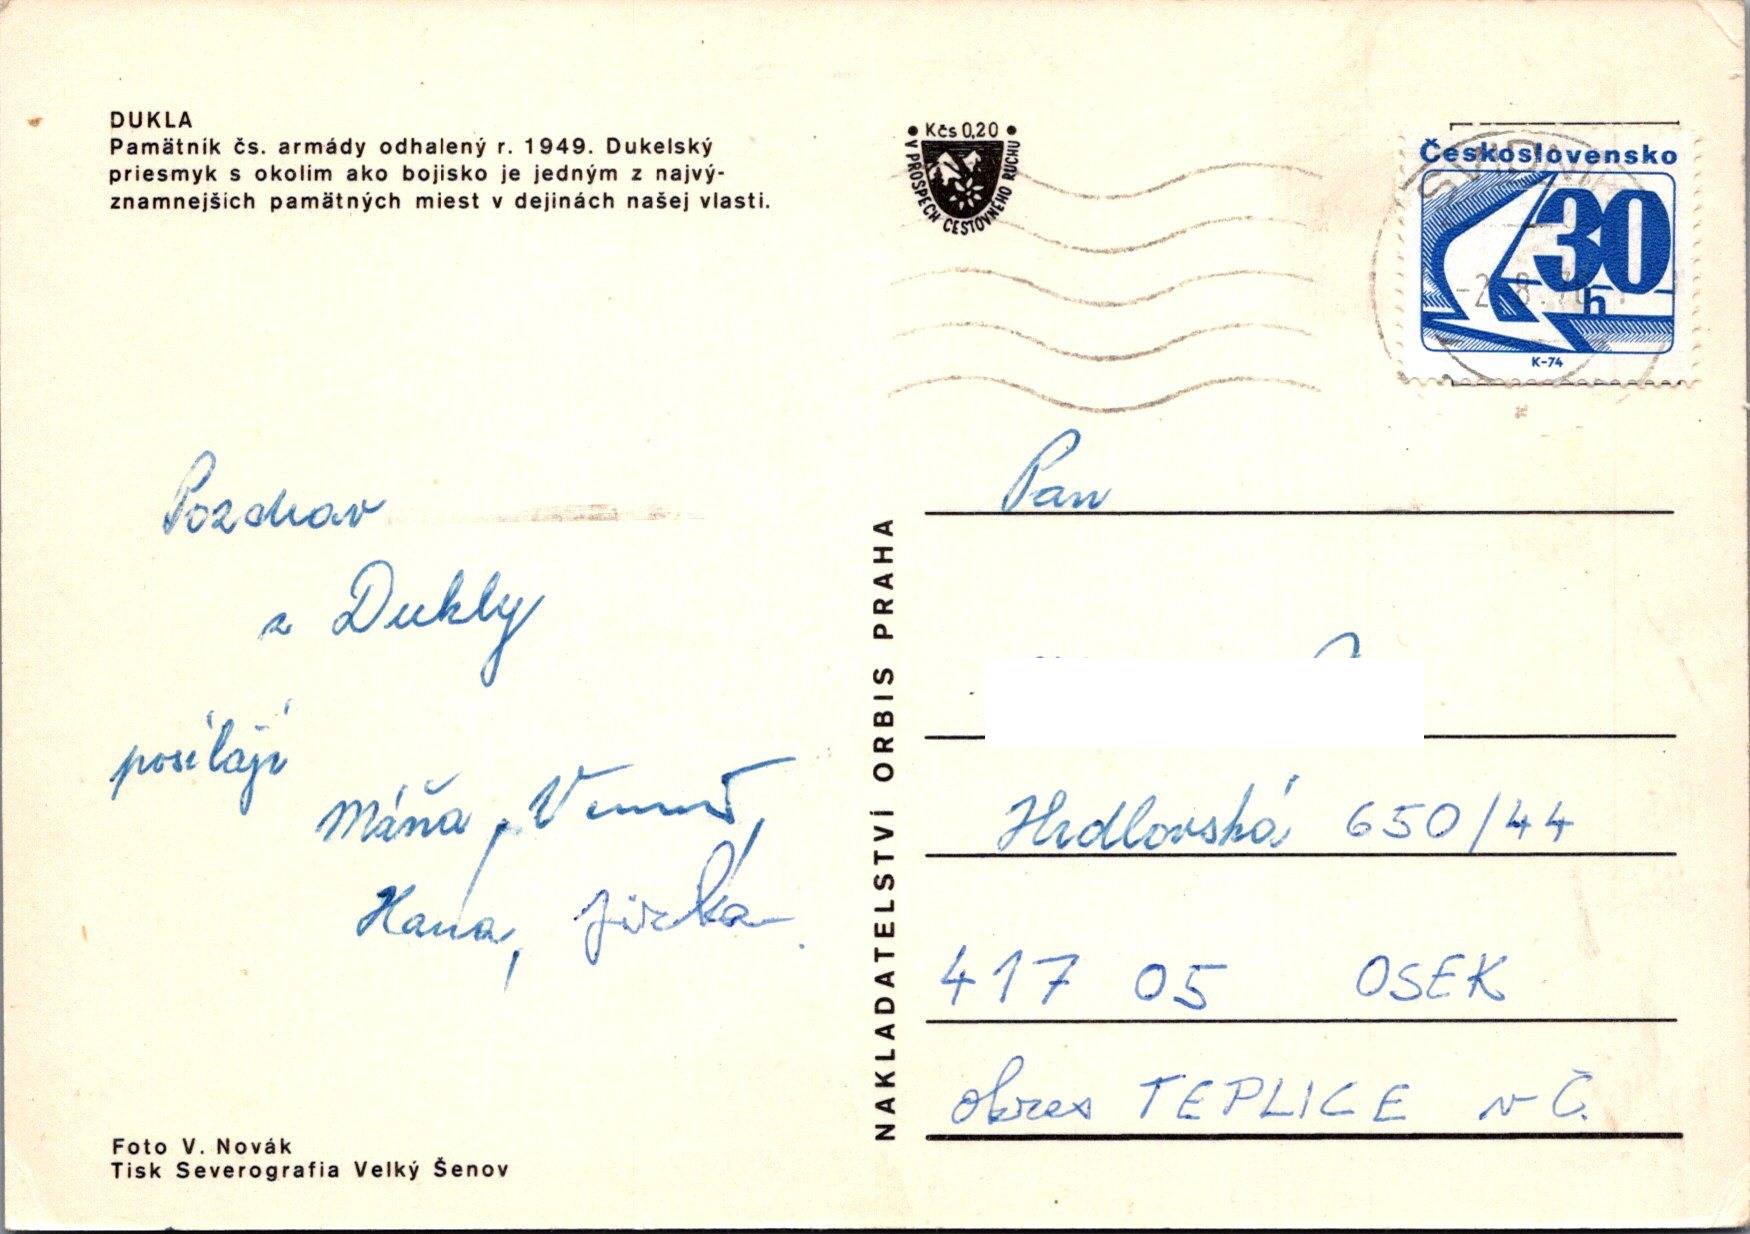 DUKLA
Pamätník čs. armády odhalený r. 1949. Dukelský
priesmyk s okolím ako bojisko je jedným z najvý-
znamnejších pamätných miest v dejinách našej vlasti.
• Kčs 0,20 •
V PROSPECH CESTOVNÉHO RUCHU
Československo
30
h
K-74
SVIDNÍK
Pozdrav
z Dukly
posílají
Máňa,
Hana, Jirka.
NAKLADATELSTVÍ ORBIS PRAHA
Pan
Hrdlovská 650/44
417 05 OSEK
okres TEPLICE v Č.
Foto V. Novák
Tisk Severografia Velký Šenov